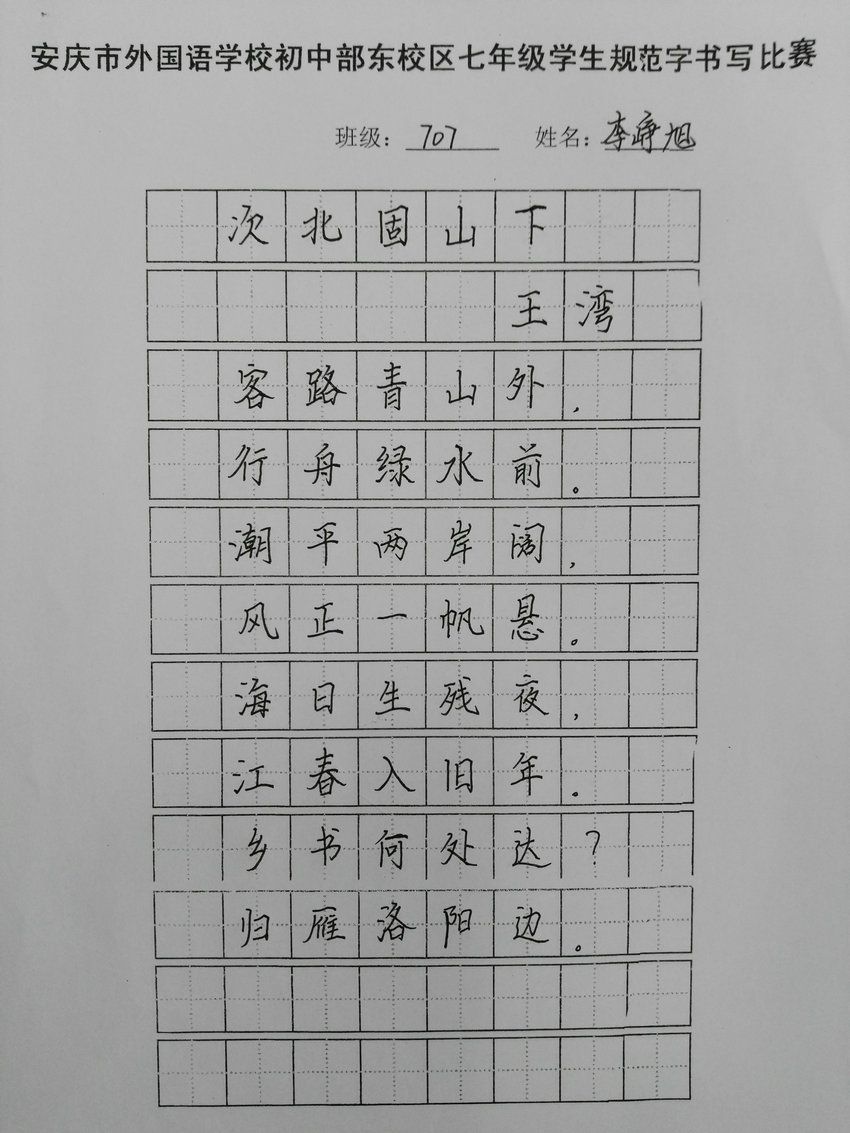 安庆市外国语学校初中部东校区七年级学生规范字书写比赛
班级： 707 姓名：李峥旭
次北固山下
王湾
客路青山外，
行舟绿水前。
潮平两岸阔，
风正一帆悬。
海日生残夜，
江春入旧年。
乡书何处达？
归雁洛阳边。